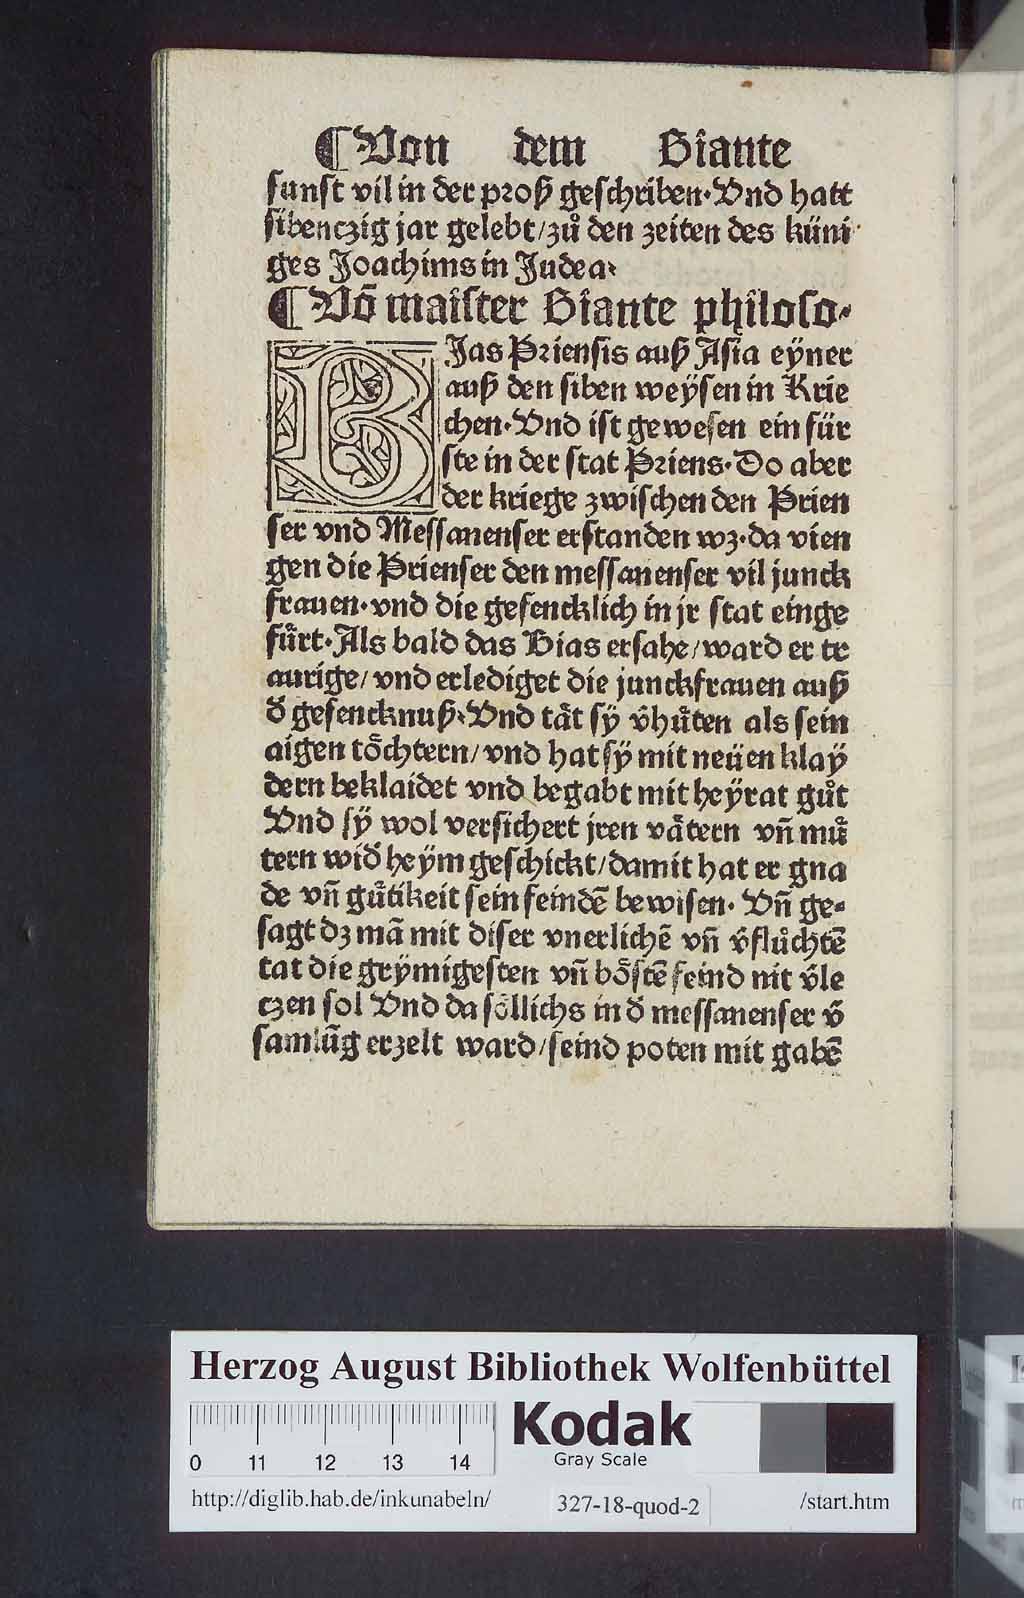 ¶ Von dem Biante
sunst vil in der proß geschriben. Vnd hatt
sibenczig jar gelebt/ zů den zeiten des küni
ges Joachims in Judea.
¶ Võ maister Biante philoso-
BJas Priensis auß Asia eÿner
auß den siben weÿsen in Krie
chen. Vnd ist gewesen ein für
ste in der stat Priens. Do aber
der kriege zwischen den Prien
ser vnd Messanenser erstanden wz. da vien
gen die Prienser den messanenser vil junck
frauen. vnd die gefencklich in jr stat einge
fuͤrt. Als bald das Bias ersahe/ ward er tr
aurige/ vnd erlediget die junckfrauen auß
d̕ gefencknuß. Vnd taͤt sÿ v̕huͤten als sein
aigen toͤchtern/ vnd hat sÿ mit neüen klaÿ
dern beklaidet vnd begabt mit heÿrat gůt
Vnd sÿ wol versichert jren vaͤtern vñ muͤ
tern wid̕ heÿm geschickt/ damit hat er gna
de vñ guͤtikeit sein feindẽ bewisen. Vñ ge-
sagt dz mã mit diser vnerlichẽ vñ v̕flůchtẽ
tat die grÿmigesten vñ boͤstẽ feind nit v̕le
czen sol Vnd da soͤllichs in d̕ messanenser v̕
samlũg erzelt ward/ seind poten mit gabẽ
Herzog August Bibliothek Wolfenbüttel
0 11 12 13 14
Kodak
Gray Scale
http://diglib.hab.de/inkunabeln/ 327-18-quod-2 /start.htm